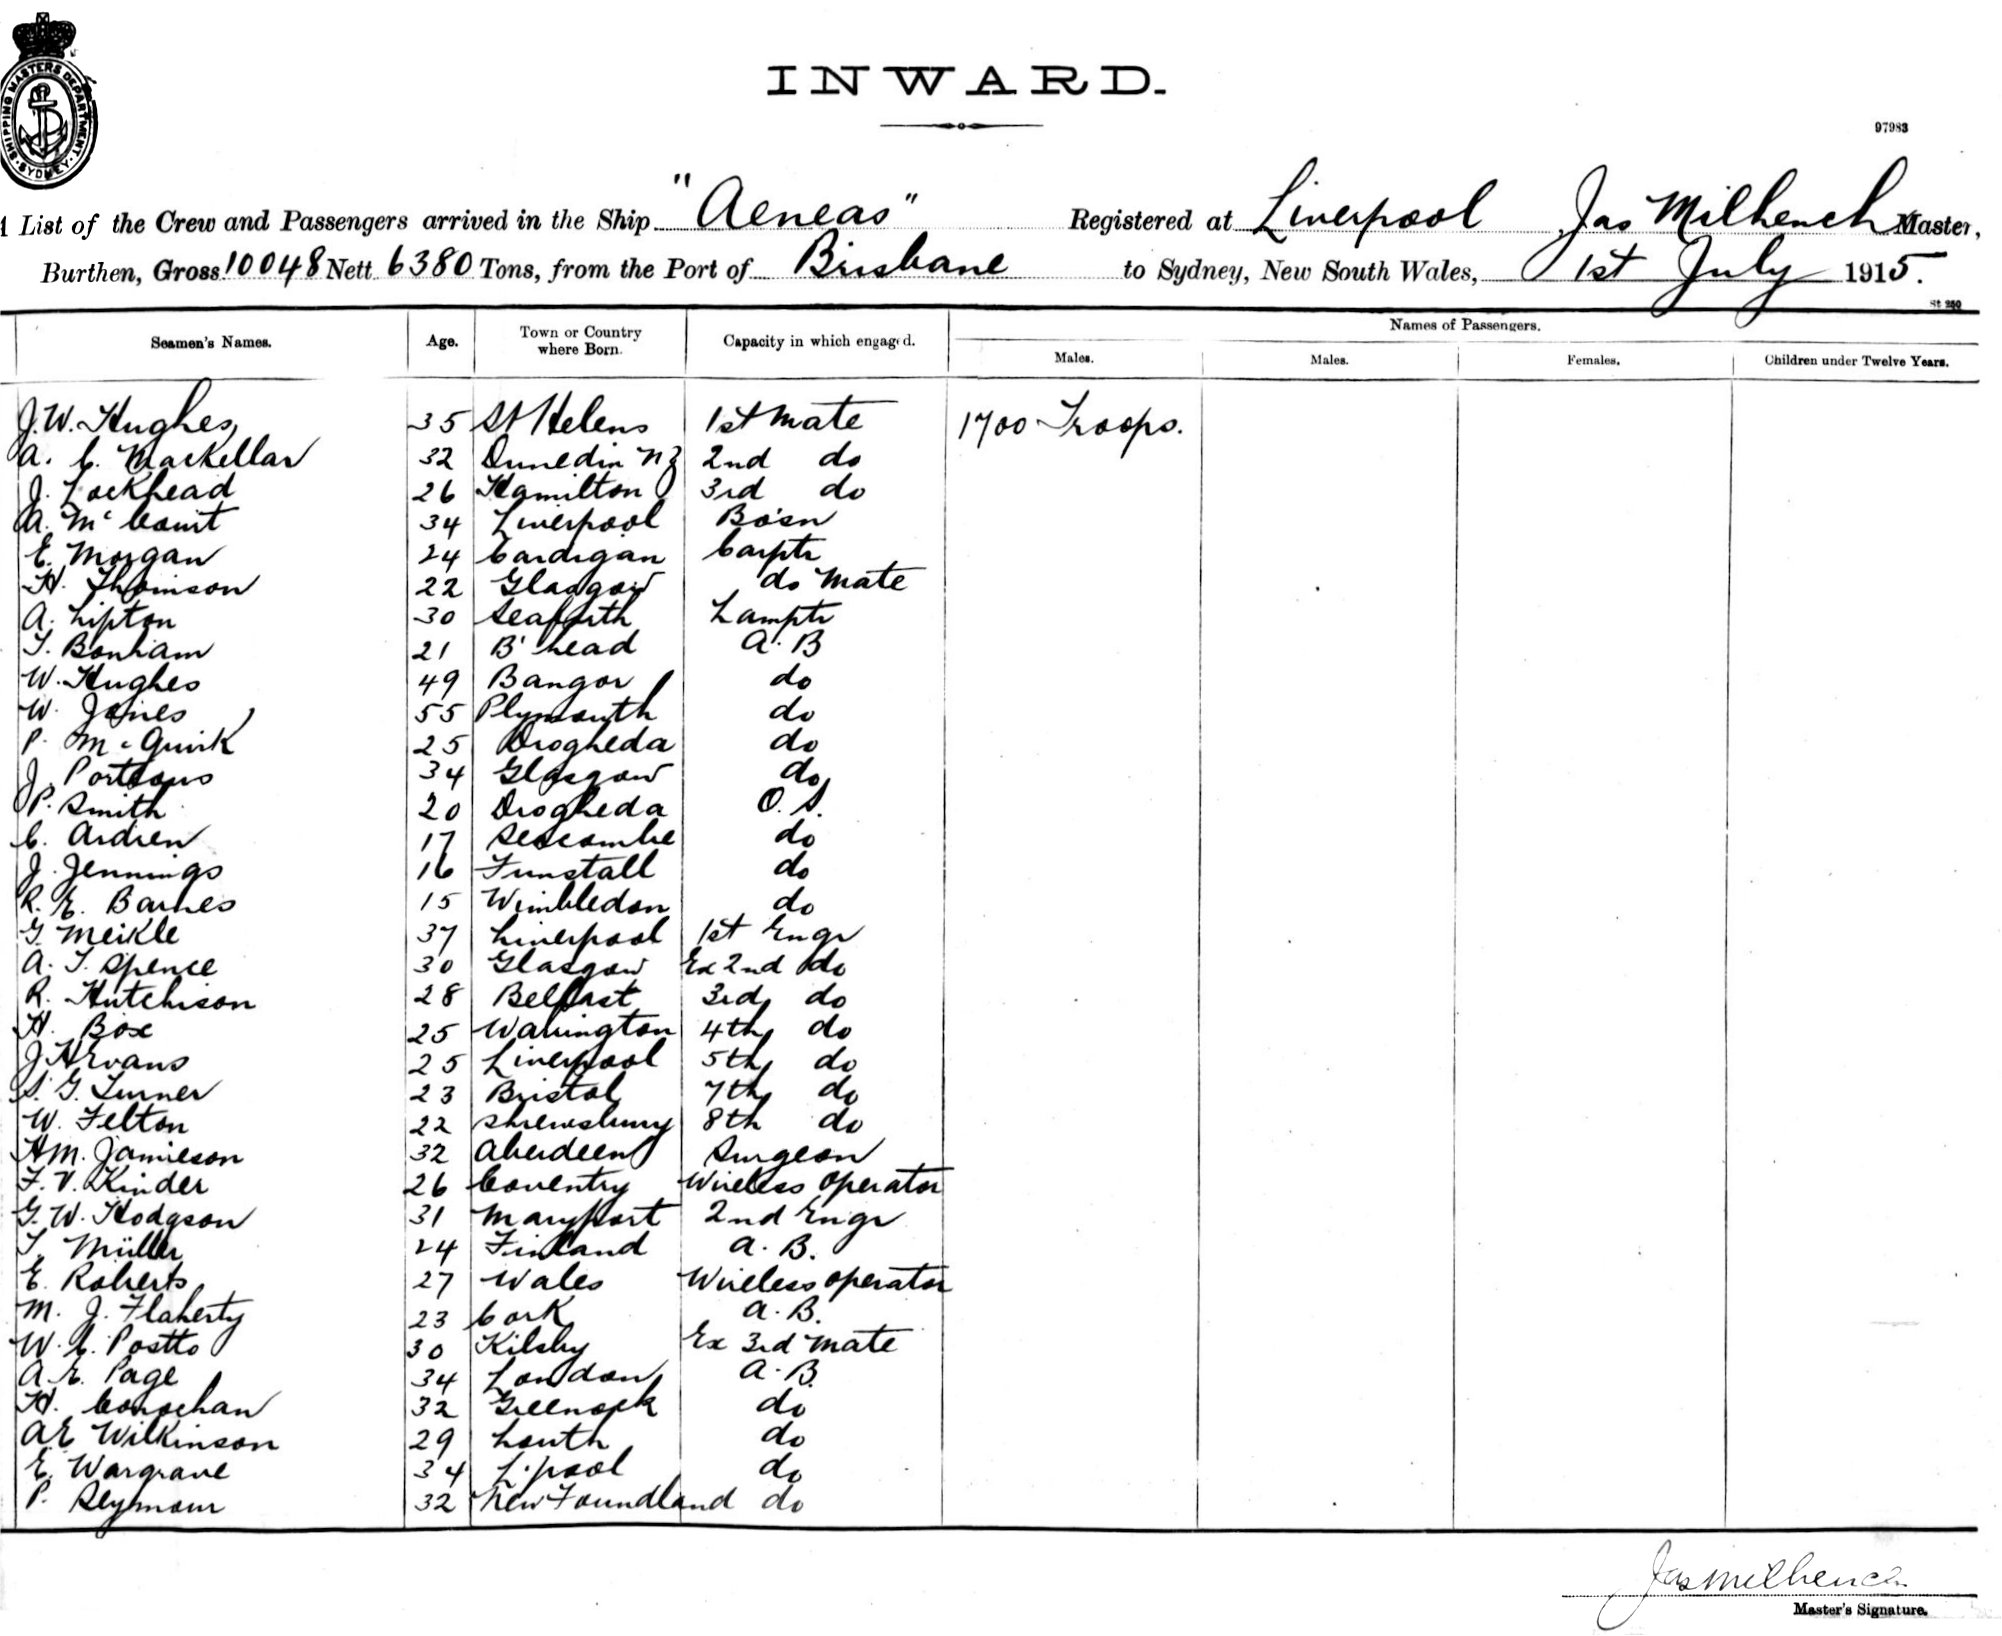 SHIPPING MASTERS DEPARTMENT. SYDNEY.
INWARD.
97983
List of the Crew and Passengers arrived in the Ship "Aeneas" Registered at Liverpool Jas Milhench Master,
Burthen, Gross 10048 Nett 6380 Tons, from the Port of Brisbane to Sydney, New South Wales, 1st July 1915.
St 250
Seamen's Names. Age. Town or Country where Born. Capacity in which engaged. Names of Passengers.
Males. Males. Females. Children under Twelve Years.
J. W. Hughes 35 St Helens 1st Mate 1700 Troops.
A. C. MacKellar 32 Dunedin NZ 2nd do
J. Lockhead 26 Hamilton 3rd do
A. McCourt 34 Liverpool Bosn
E. Morgan 24 Cardigan Carptr
H. Thomson 22 Glasgow do Mate
A. Lipton 30 Seaforth Lamptr
T. Bonham 21 B'head A.B
W. Hughes 49 Bangor do
W. Jones 55 Plymouth do
P. McGuirk 25 Drogheda do
J. Porteous 34 Glasgow do
P. Smith 20 Drogheda O.S.
C. Ardren 17 Seacombe do
J. Jennings 16 Tunstall do
R. E. Barnes 15 Wimbledon do
G. Meikle 37 Liverpool 1st Engr
A. T. Spence 30 Glasgow Ex 2nd do
R. Hutchison 28 Belfast 3rd do
H. Box 25 Warrington 4th do
J H Evans 25 Liverpool 5th do
S. G. Turner 23 Bristol 7th do
W. Felton 22 Shrewsbury 8th do
H M. Jamieson 32 Aberdeen Surgeon
F. V. Kinder 26 Coventry Wireless Operator
G. W. Hodgson 31 Maryport 2nd Engr
T. Müller 24 Finland A.B.
E. Roberts 27 Wales Wireless operator
M. J. Flaherty 23 Cork A.B.
W. C. Postto 30 Kilsby Ex 3rd Mate
A. E. Page 34 London A.B.
H. Conochan 32 Greenock do
A E Wilkinson 29 Louth do
E. Wargrave 34 L'pool do
P. Seymour 32 New Foundland do
Jas Milhench
Master's Signature.